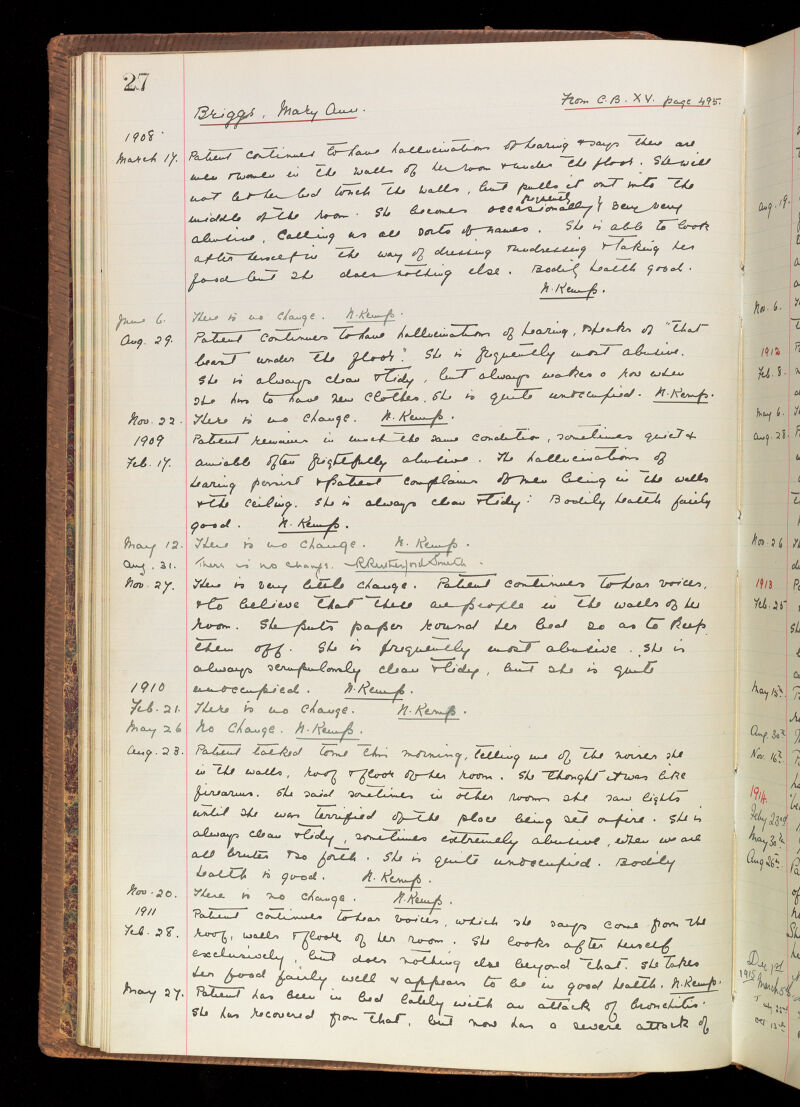 27
Briggs, Mary Ann.
From C.B. XV. page 495.
1908
March 17. Patient continues to have hallucinations of hearing & says there are
men & women in the walls of her room & under the floor. She will
not let her bed touch the walls, but pulls it out into the
middle of the room. She becomes occasionally & frequently very very
abusive, calling us all sorts of names. She is able to look
after herself in the way of dressing & undressing & taking her
food but she does nothing else. Bodily health good.
N. Kemp.
June 6. There is no change. N. Kemp.
Aug. 29. Patient continues to have hallucinations of hearing, & speaks of "that
beast under the floor". She is frequently most abusive.
She is always clean & tidy, but always makes a row when
she has to have new clothes. She is quite unoccupied. N. Kemp.
Nov. 22. There is no change. N. Kemp.
1909 Patient remains in much the same condition, sometimes quiet &
Feb. 17. amiable often frightfully abusive. The hallucinations of
hearing persist & patient complains of men being in the walls
& the ceiling. She is always clean & tidy: Bodily health fairly
good. N. Kemp.
May 12. There is no change. N. Kemp.
Aug. 31. There is no change. R Rutherford Smith.
Nov. 27. There is very little change. Patient continues to hear voices,
& to believe that there are people in the walls of her
room. She puts paper round her bed so as to keep
them off. She is frequently most abusive. She is
always scrupulously clean & tidy, but she is quite
1910 unoccupied. N. Kemp.
Feb. 21. There is no change. N. Kemp.
May 26 No change. N. Kemp.
Aug. 23. Patient talked to me this morning, telling me of the noises she
in the walls, roof & floor of her room. She thought it was like
firearms. She said sometimes in other rooms she saw lights
until she was terrified of the place being set on fire. She is
always clean & tidy, sometimes extremely abusive, when we are
all brutes & so forth. She is quite unoccupied. Bodily
health is good. N. Kemp.
Nov. 20. There is no change. N. Kemp.
1911 Patient continues to hear voices, which she says come from the
Feb. 28. roof, walls & floor of her room. She looks after herself
exclusively, but does nothing else beyond that. She takes
her food fairly well & appears to be in good health. N. Kemp.
May 27. Patient has been in bed lately with an attack of bronchitis.
She has recovered from that, but now has a severe attack of
Aug. 19.
Nov. 6.
1912
Feb. 8.
May 6.
Aug. 28.
Nov. 26
1913
Feb. 25
May 15th
Aug. 30th
Nov. 16th
1914
Feby 23rd
May 30th
Aug 26th
Dec 1st
1915 March 5th